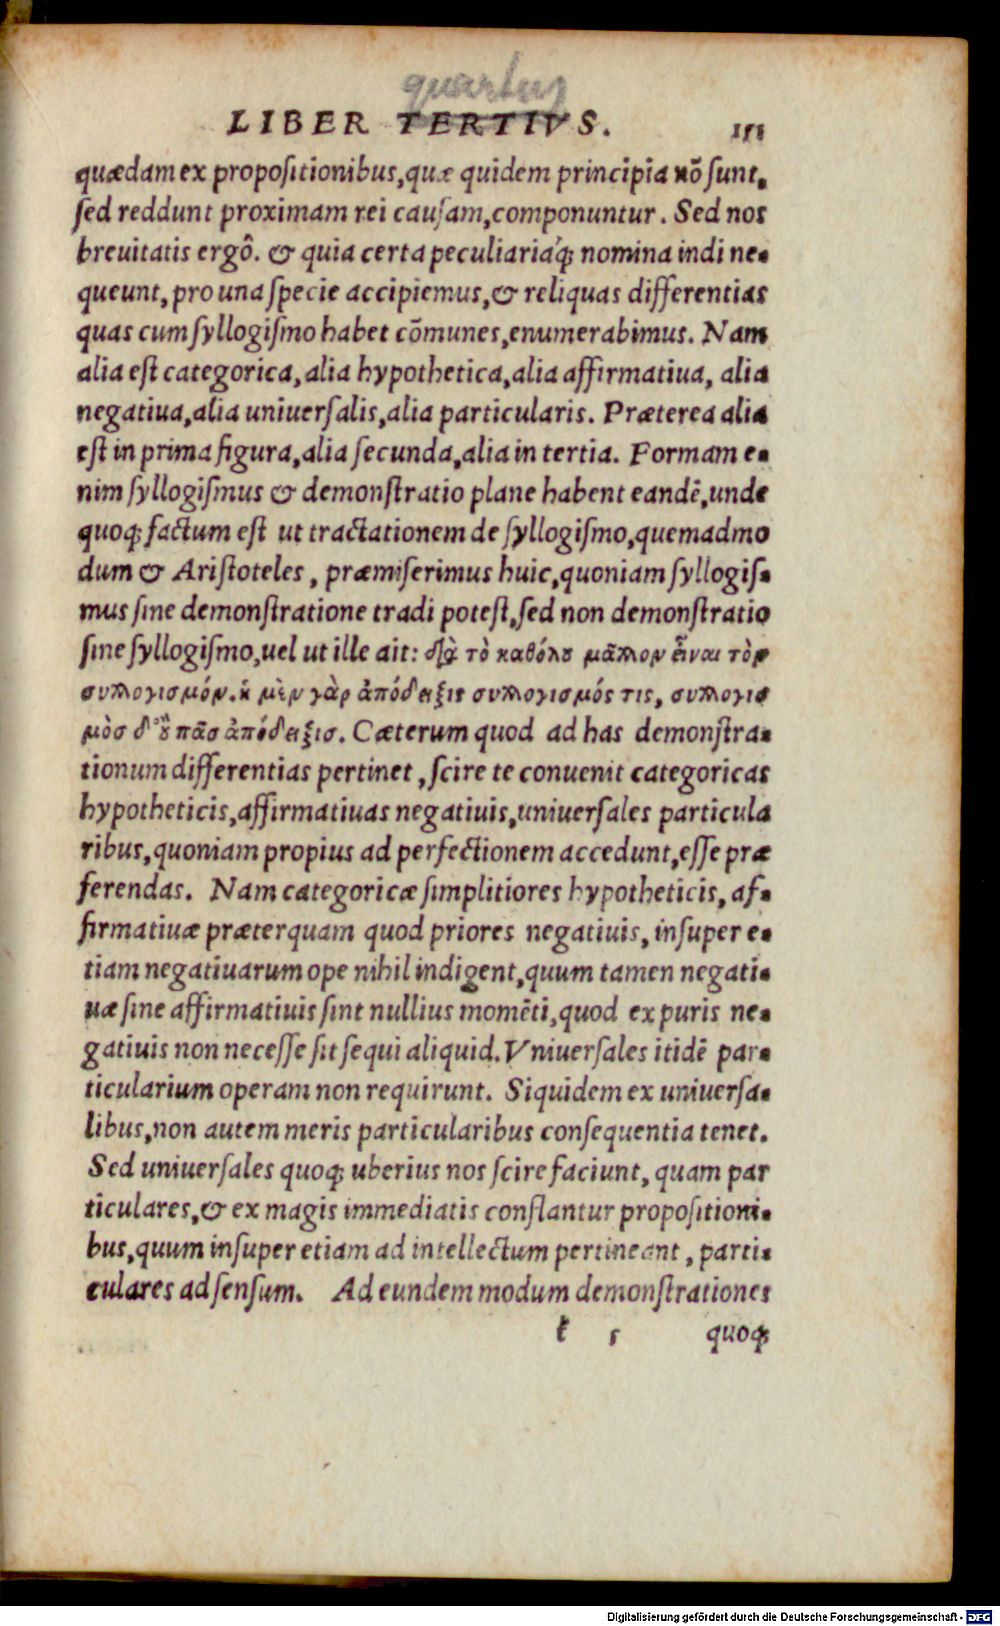 quartus
LIBER TERTIVS. 151
quædam ex propositionibus, quæ quidem principia nõ sunt,
sed reddunt proximam rei causam, componuntur. Sed nos
breuitatis ergô. & quia certa peculiariaq́; nomina indi ne-
queunt, pro una specie accipiemus, & reliquas differentias
quas cum syllogismo habet cõmunes, enumerabimus. Nam
alia est categorica, alia hypothetica, alia affirmatiua, alia
negatiua, alia uniuersalis, alia particularis. Præterea alia
est in prima figura, alia secunda, alia in tertia. Formam e-
nim syllogismus & demonstratio plane habent eandẽ, unde
quoq; factum est ut tractationem de syllogismo, quemadmo
dum & Aristoteles, præmiserimus huic, quoniam syllogis-
mus sine demonstratione tradi potest, sed non demonstratio
sine syllogismo, uel ut ille ait: διὰ τὸ καθόλου μᾶλλον εἶναι τὸν
συλλογισμόν. ἡ μὲν γὰρ ἀπόδειξις συλλογισμός τις, συλλογισ
μὸσ δ' οὐ πᾶσ ἀπόδειξισ. Cæterum quod ad has demonstra-
tionum differentias pertinet, scire te conuenit categoricas
hypotheticis, affirmatiuas negatiuis, uniuersales particula
ribus, quoniam propius ad perfectionem accedunt, esse præ
ferendas. Nam categoricæ simplitiores hypotheticis, af-
firmatiuæ præterquam quod priores negatiuis, insuper e-
tiam negatiuarum ope nihil indigent, quum tamen negati-
uæ sine affirmatiuis sint nullius momẽti, quod ex puris ne-
gatiuis non necesse sit sequi aliquid. Vniuersales itidẽ par-
ticularium operam non requirunt. Siquidem ex uniuersa-
libus, non autem meris particularibus consequentia tenet.
Sed uniuersales quoq; uberius nos scire faciunt, quam par
ticulares, & ex magis immediatis conflantur propositioni-
bus, quum insuper etiam ad intellectum pertineant, parti-
culares ad sensum. Ad eundem modum demonstrationes
t 5 quoq;
Digitalisierung gefördert durch die Deutsche Forschungsgemeinschaft - DFG